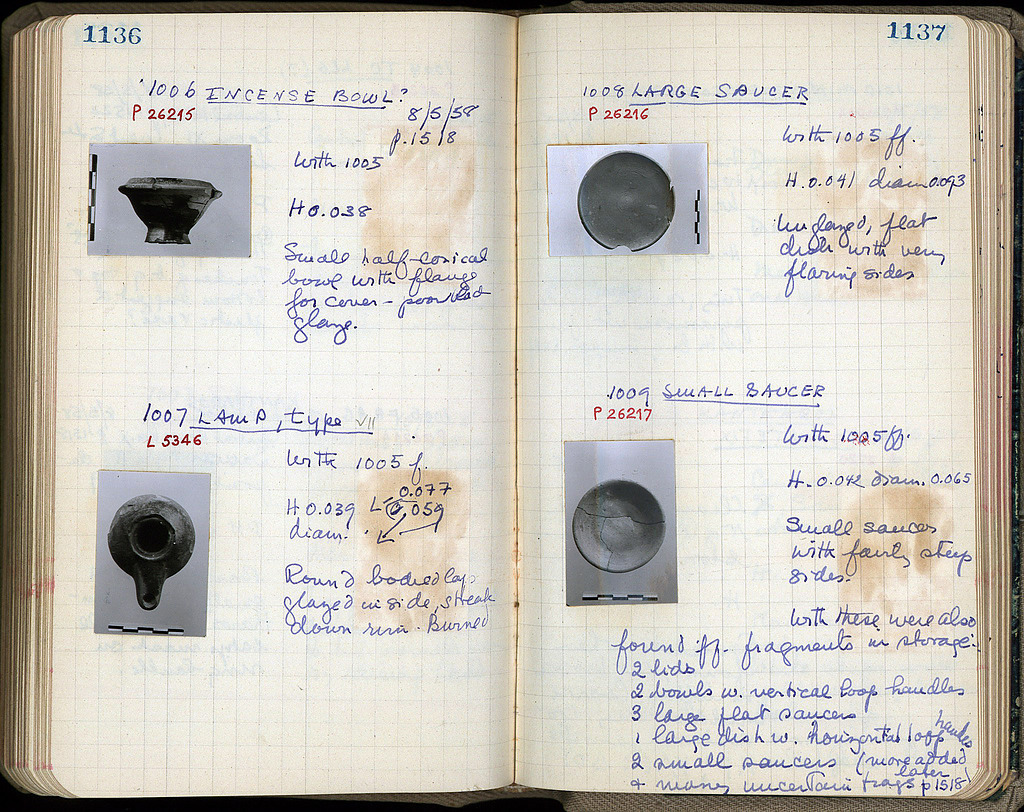 1136
1006 INCENSE BOWL?
P 26215
8/5/58
p. 1518
With 1005
H 0.038
Small half-conical
bowl with flange
for cover - poor
glaze.
1007 LAMP, type VII
L 5346
With 1005 f.
H 0.039 L 0.077
0.059
diam.
Round bodied
glazed inside, streak
down rim. Burned
1137
1008 LARGE SAUCER
P 26216
With 1005 ff.
H. 0.041 diam 0.093
Unglazed, flat
dish with very
flaring sides
1009 SMALL SAUCER
P 26217
With 1005 ff.
H. 0.042 diam. 0.065
Small saucer
with fairly steep
sides.
With these were also
found ff. fragments in storage:
2 lids
2 bowls w. vertical loop handles
3 large flat saucers
1 large dish w. horizontal loop handles
2 small saucers (more added
later
+ many uncertain frags p 1518)